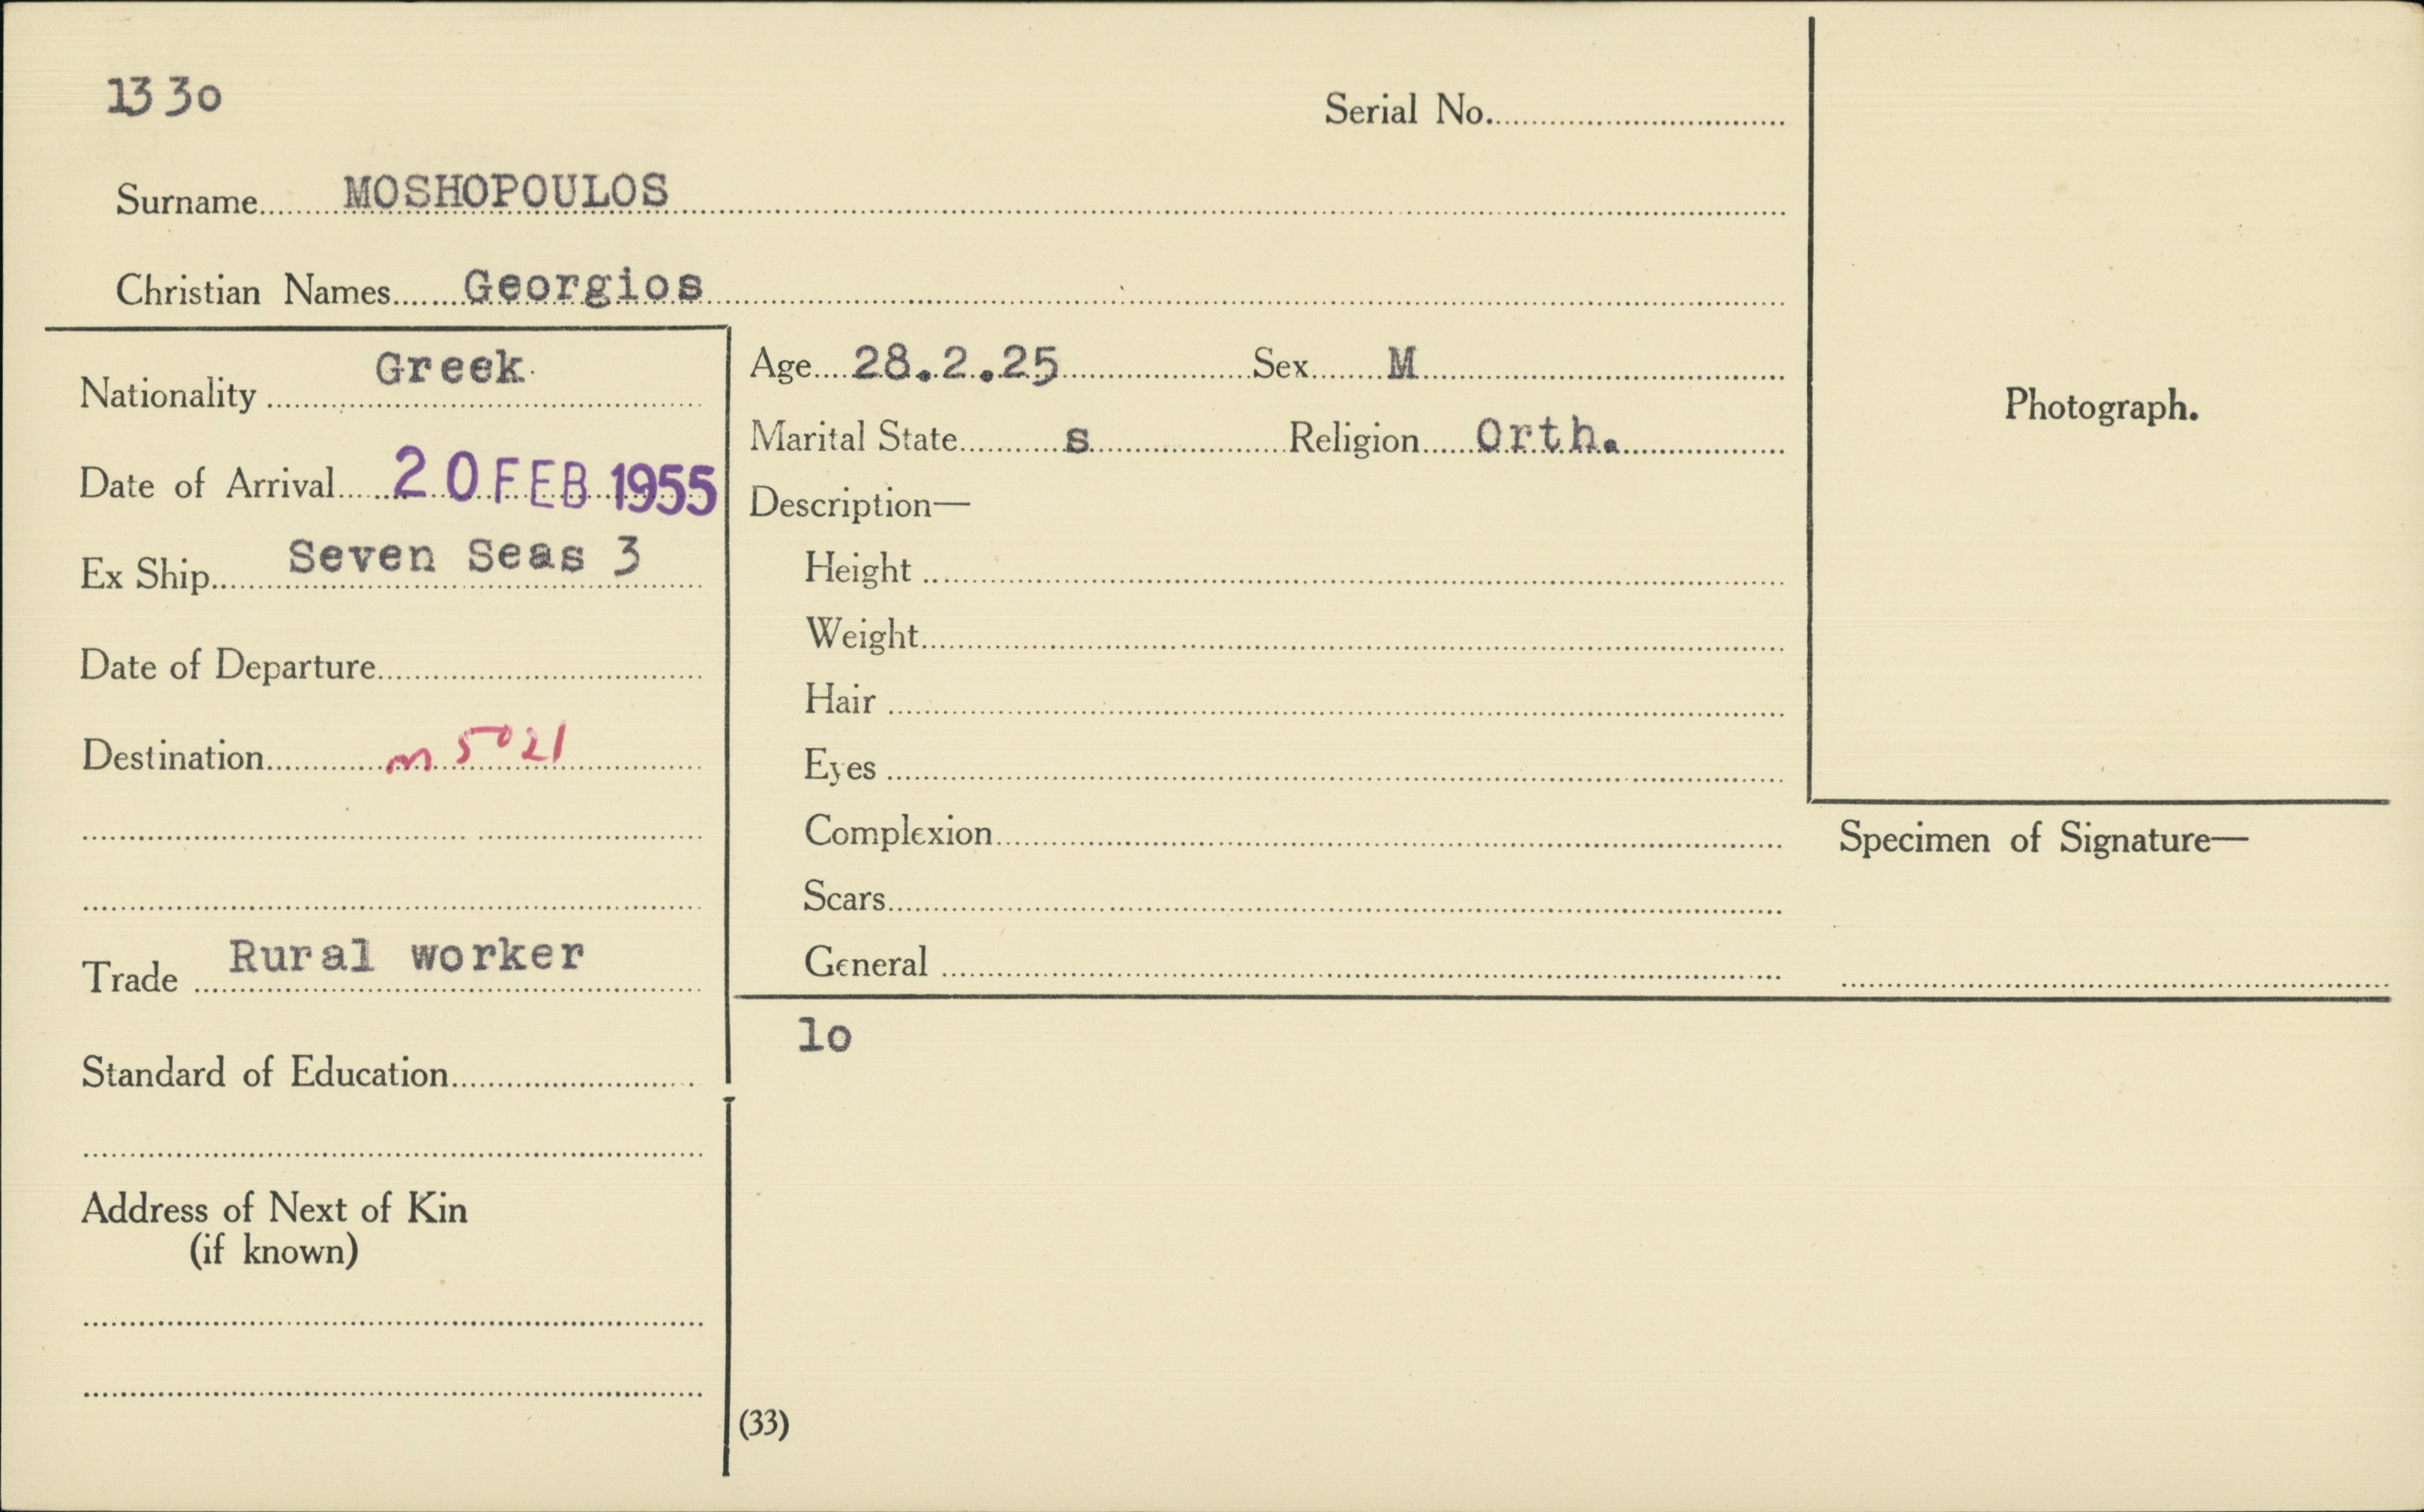 1330
Serial No.
Surname MOSHOPOULOS
Christian Names Georgios
Nationality Greek
Date of Arrival 20 FEB 1955
Ex Ship Seven Seas 3
Date of Departure
Destination m 5021
Trade Rural worker
Standard of Education
Address of Next of Kin
(if known)
Age 28.2.25 Sex M
Marital State s Religion Orth.
Description—
Height
Weight
Hair
Eyes
Complexion
Scars
General
lo
(33)
Photograph.
Specimen of Signature—